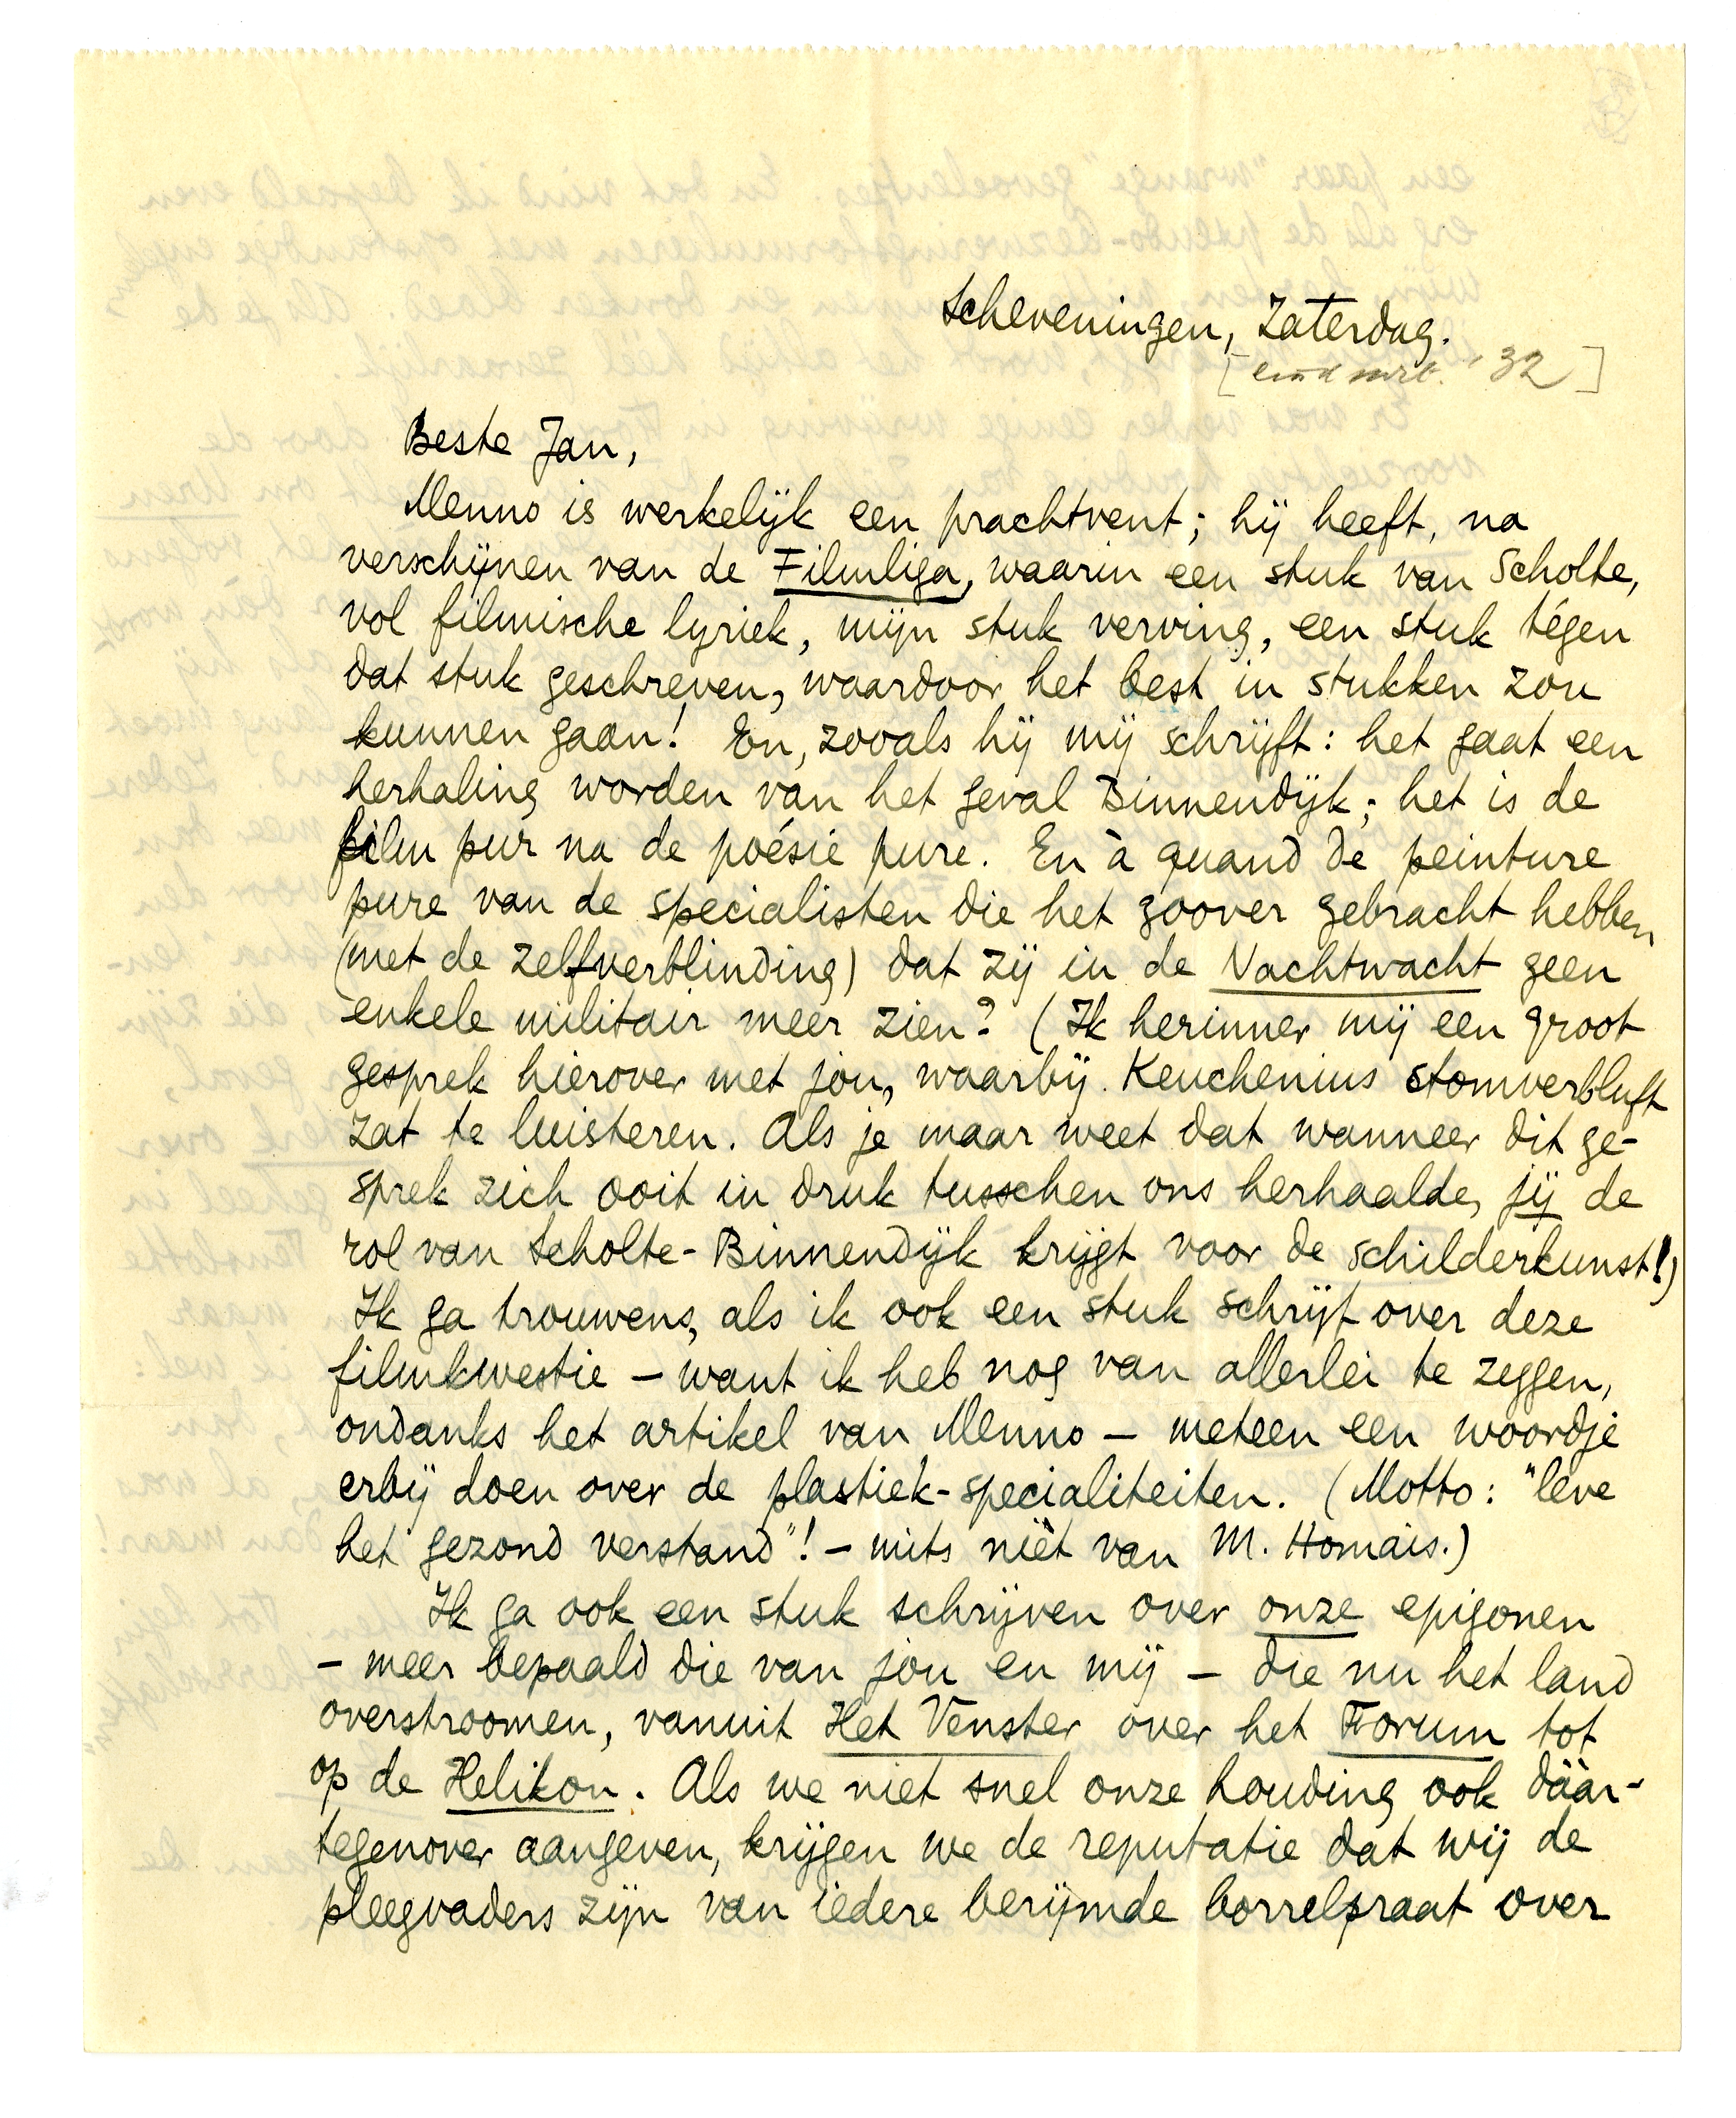 Scheveningen, Zaterdag.
[eind mrt. '32]
Beste Jan,
Menno is werkelijk een prachtvent; hij heeft, na
verschijnen van de Filmliga, waarin een stuk van Scholte,
vol filmische lyriek, mijn stuk verving, een stuk tégen
dat stuk geschreven, waardoor het best in stukken zou
kunnen gaan! En, zooals hij mij schrijft: het gaat een
herhaling worden van het geval Binnendijk; het is de
film pur na de poésie pure. En à quand de peinture
pure van de specialisten die het zoover gebracht hebben
(met de zelfverblinding) dat zij in de Nachtwacht geen
enkele militair meer zien? (Ik herinner mij een groot
gesprek hierover met jou, waarbij Keuchenius stomverbluft
zat te luisteren. Als je maar weet dat wanneer dit ge-
sprek zich ooit in druk tusschen ons herhaalde, jij de
rol van Scholte-Binnendijk krijgt, voor de schilderkunst!)
Ik ga trouwens, als ik ook een stuk schrijf over deze
filmkwestie – want ik heb nog van allerlei te zeggen,
ondanks het artikel van Menno – meteen een woordje
erbij doen over de plastiek-specialiteiten. (Motto: "leve
het gezond verstand"! – mits niet van M. Homais.)
Ik ga ook een stuk schrijven over onze epigonen
– meer bepaald die van jou en mij – die nu het land
overstroomen, vanuit Het Venster over het Forum tot
op de Helikon. Als we niet snel onze houding ook dáár-
tegenover aangeven, krijgen we de reputatie dat wij de
pleegvaders zijn van iedere berijmde borrelpraat over